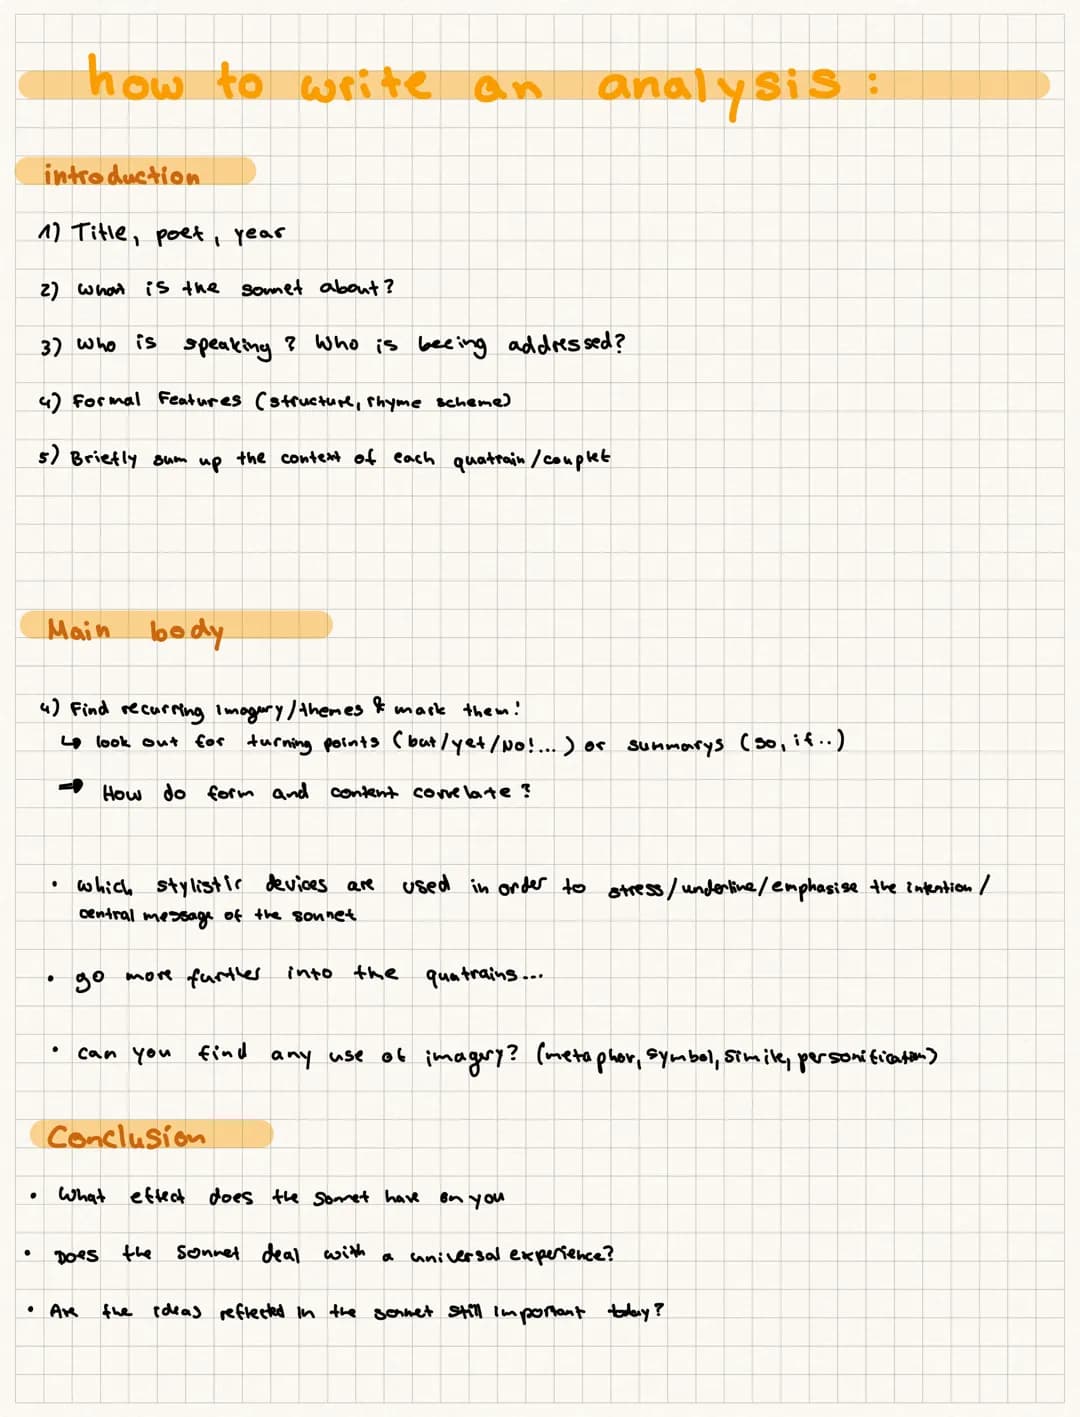 how to write an analysis:
introduction
1) Title, poet, year
2) What is the sonnet about?
3) Who is speaking? Who is beeing addressed?
4) Formal Features (structure, rhyme scheme)
5) Briefly sum up the context of each quatrain/couplet
Main body
4) Find recurring imagery/themes & mark them!
↳ look out for turning points (but/yet/No!...) or summarys (so, if..)
→ How do form and content correlate?
• which stylistic devices are used in order to stress/underline/emphasise the intention/
central message of the sonnet
• go more further into the quatrains...
• can you find any use of imagery? (metaphor, symbol, simile, personification)
Conclusion
• What effect does the sonnet have on you
• Does the sonnet deal with a universal experience?
• Are the ideas reflected in the sonnet still important today?